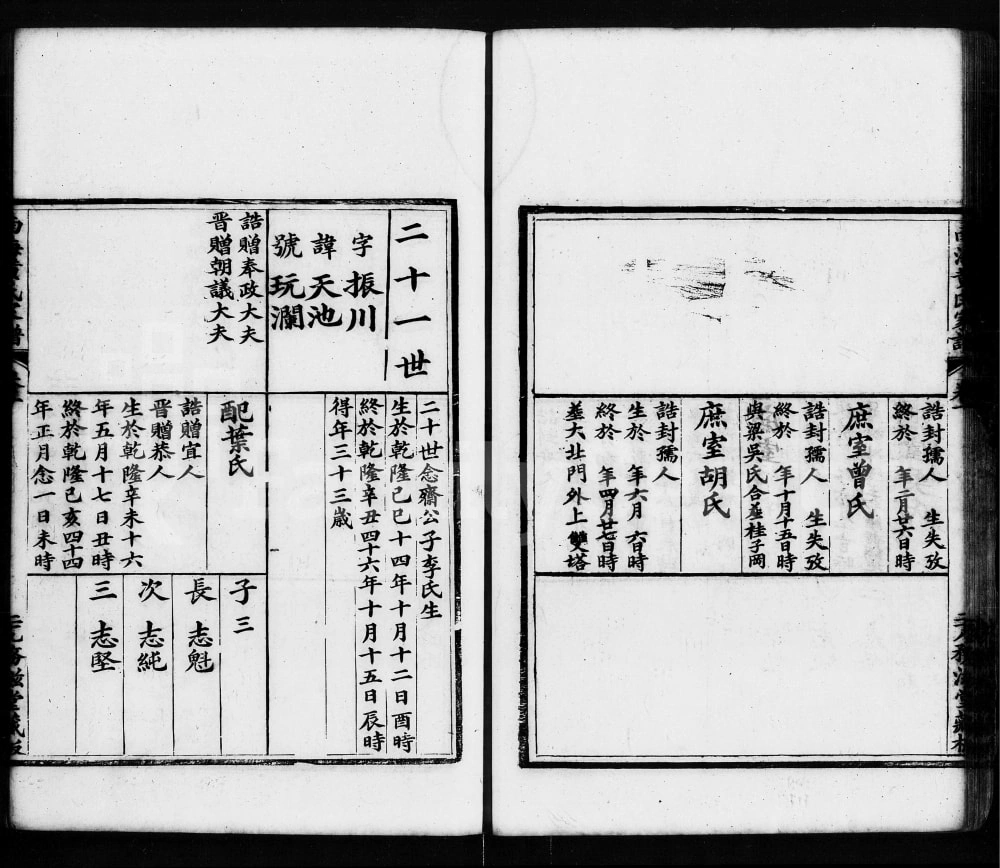 誥封孺人　生失攷
終於　年二月廿六日時
庶室曾氏
誥封孺人　生失攷
終於　年十月十五日時
與梁吳氏合塟桂子岡
庶室胡氏
誥封孺人
生於　年六月　六日時
終於　年四月廿七日時
塟大北門外上雙塔
二十一世
字振川
諱天池
號玩瀾
誥贈奉政大夫
晉贈朝議大夫
二十世念齋公子李氏生
生於乾隆己巳十四年十月十二日酉時
終於乾隆辛丑四十六年十月十五日辰時
得年三十三歲
配葉氏
誥贈宜人
晉贈恭人
生於乾隆辛未十六
年五月十七日丑時
終於乾隆己亥四十四
年正月念一日未時
子三
長　志魁
次　志純
三　志堅